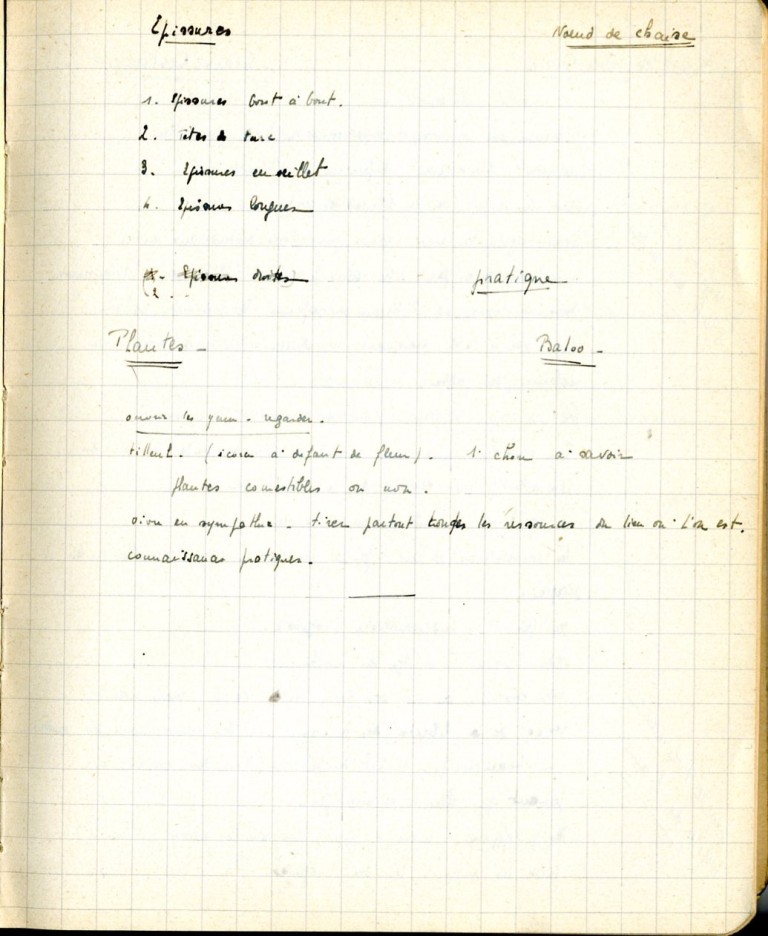 Epissures
Nœud de chaise
1. Epissures bout à bout.
2. Têtes de turc
3. Epissures en œillet
4. Epissures longues
Epissures droites
2.
pratique
Plantes -
Baloo -
ouvrir les yeux - regarder.
tilleul. ( à défaut de fleur). 1 chose à savoir
plantes comestibles ou non.
vivre en sympathie - tirer partout toutes les ressources du lieu où l'on est.
connaissances pratiques.